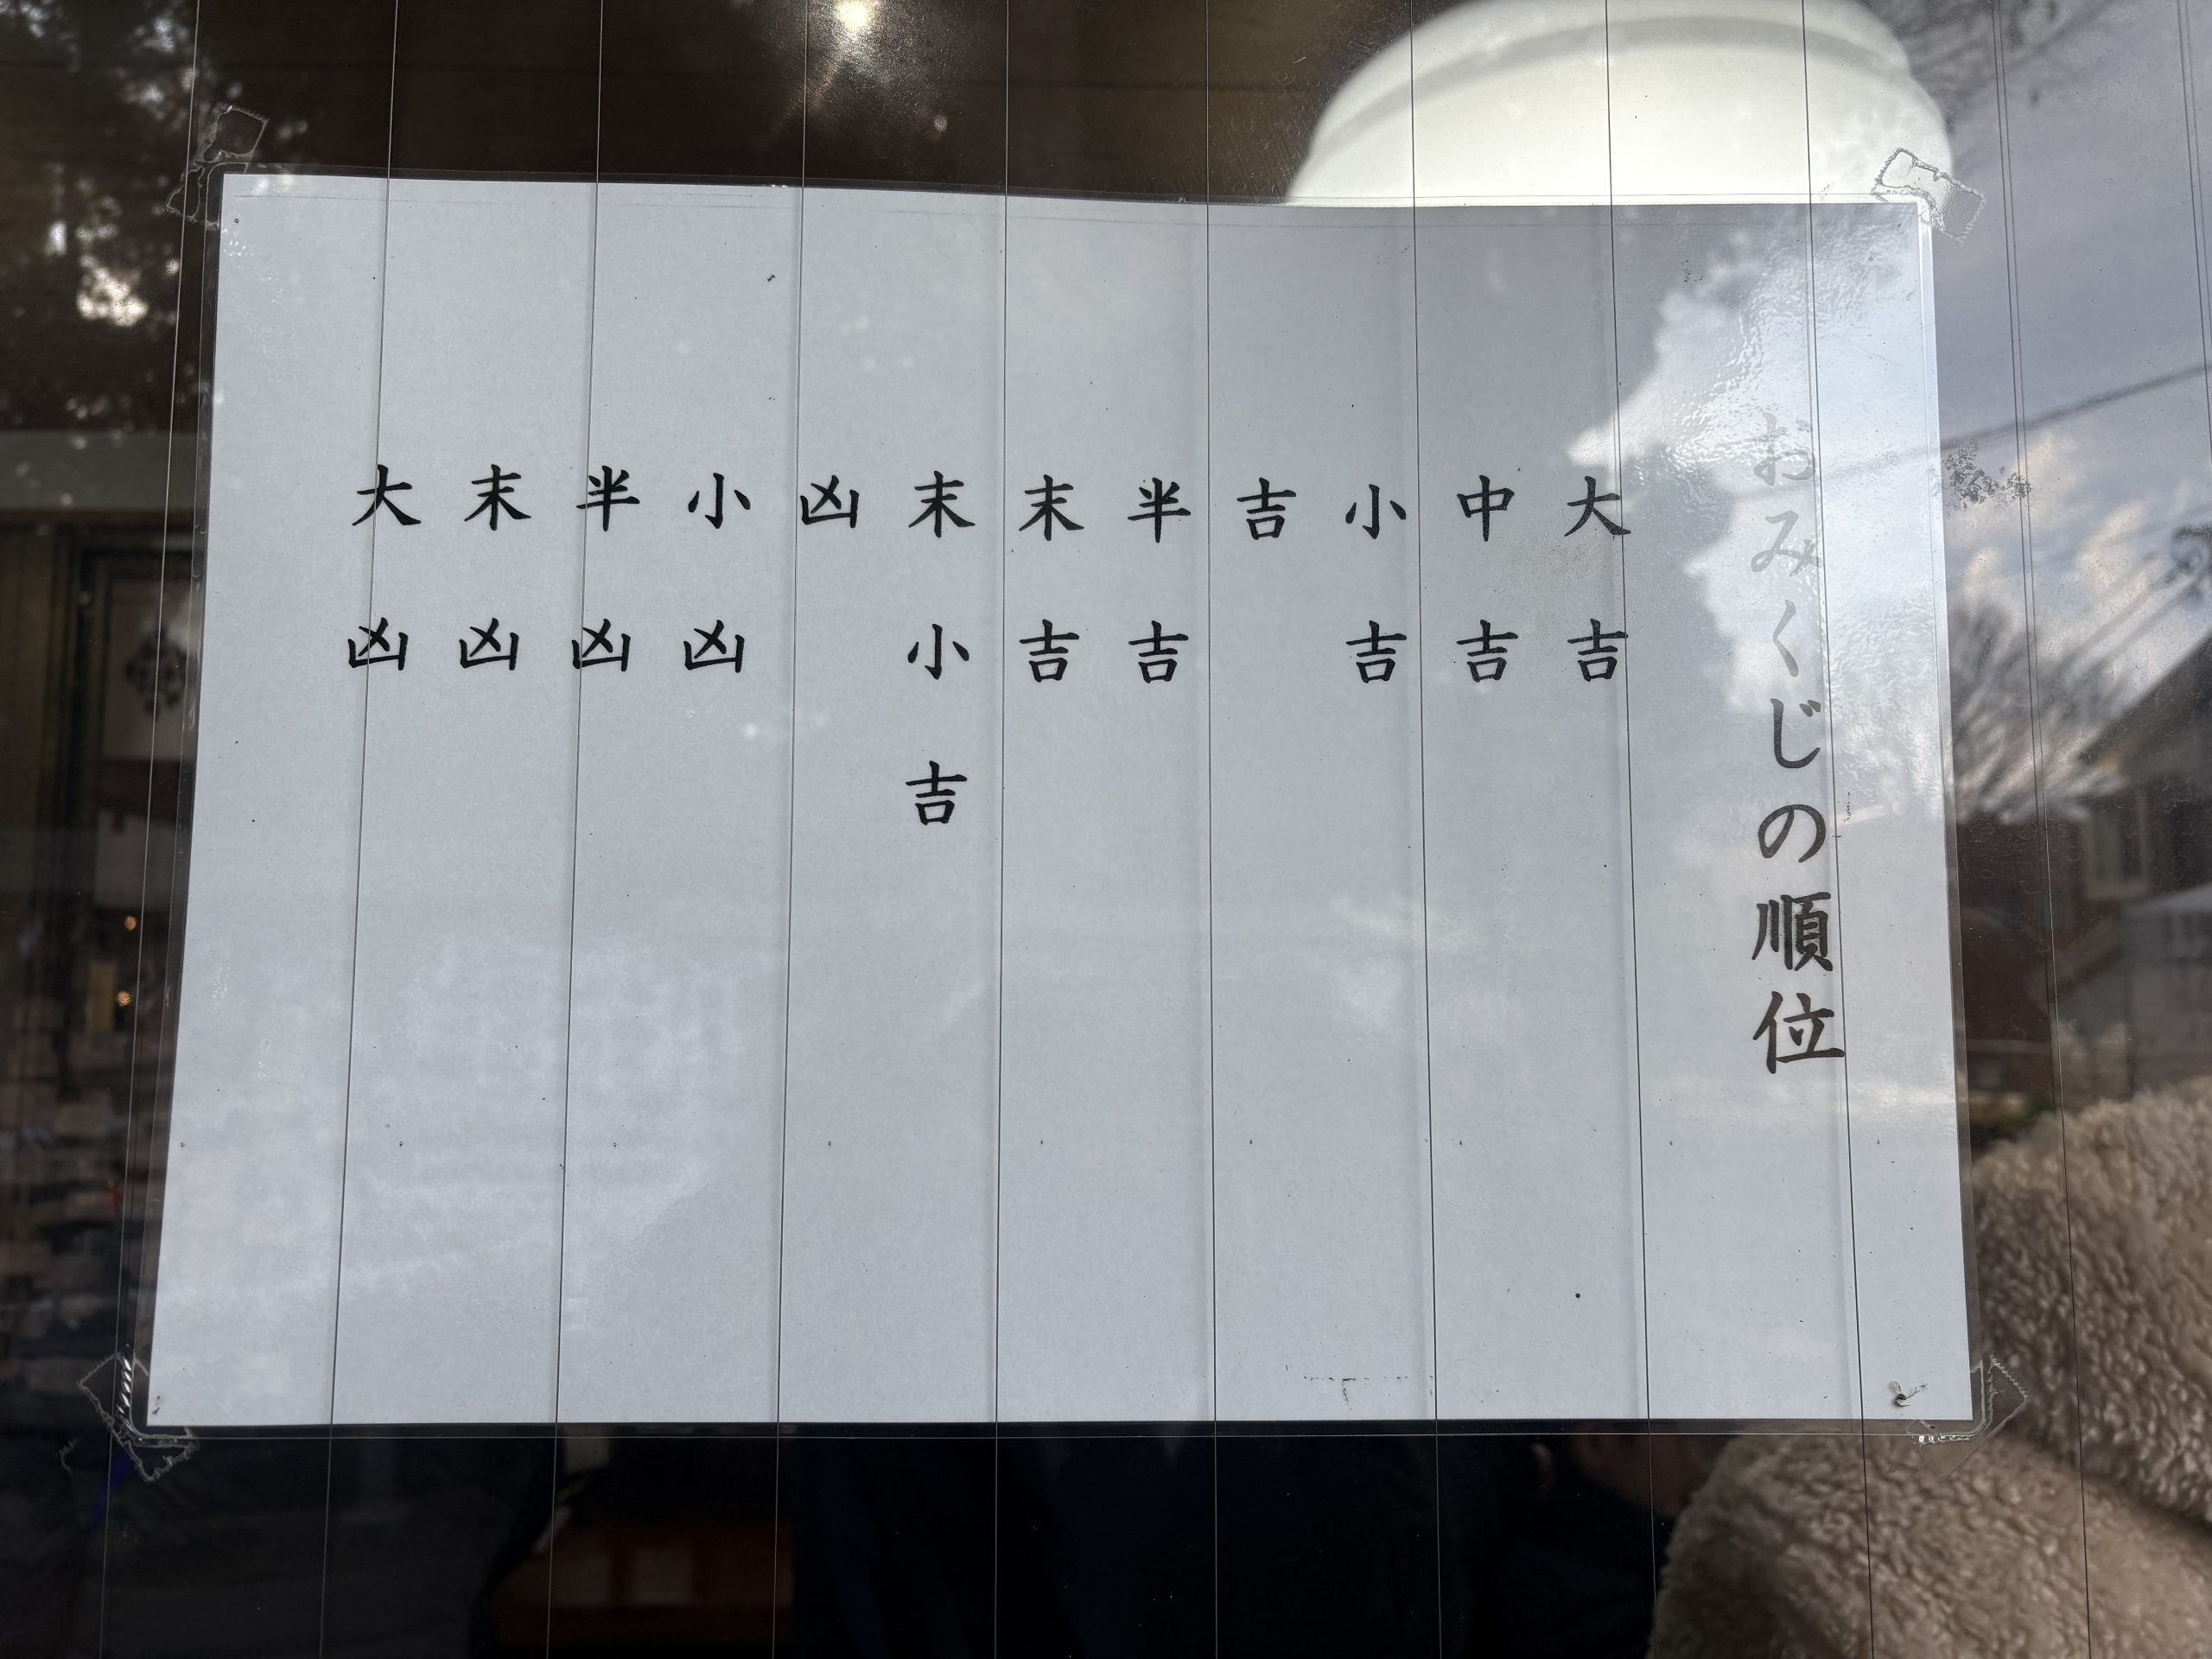 おみくじの順位
大吉
中吉
小吉
吉
半吉
末吉
末小吉
凶
小凶
半凶
末凶
大凶